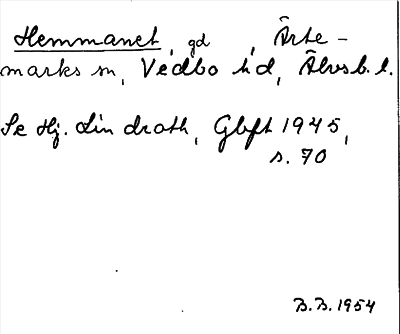 Hemmanet, gd, Ärte-
marks sn, Vedbo hd, Älvsb. l.
Se Hj. Lindroth, Gbft 1945,
s. 70
B.B. 1954